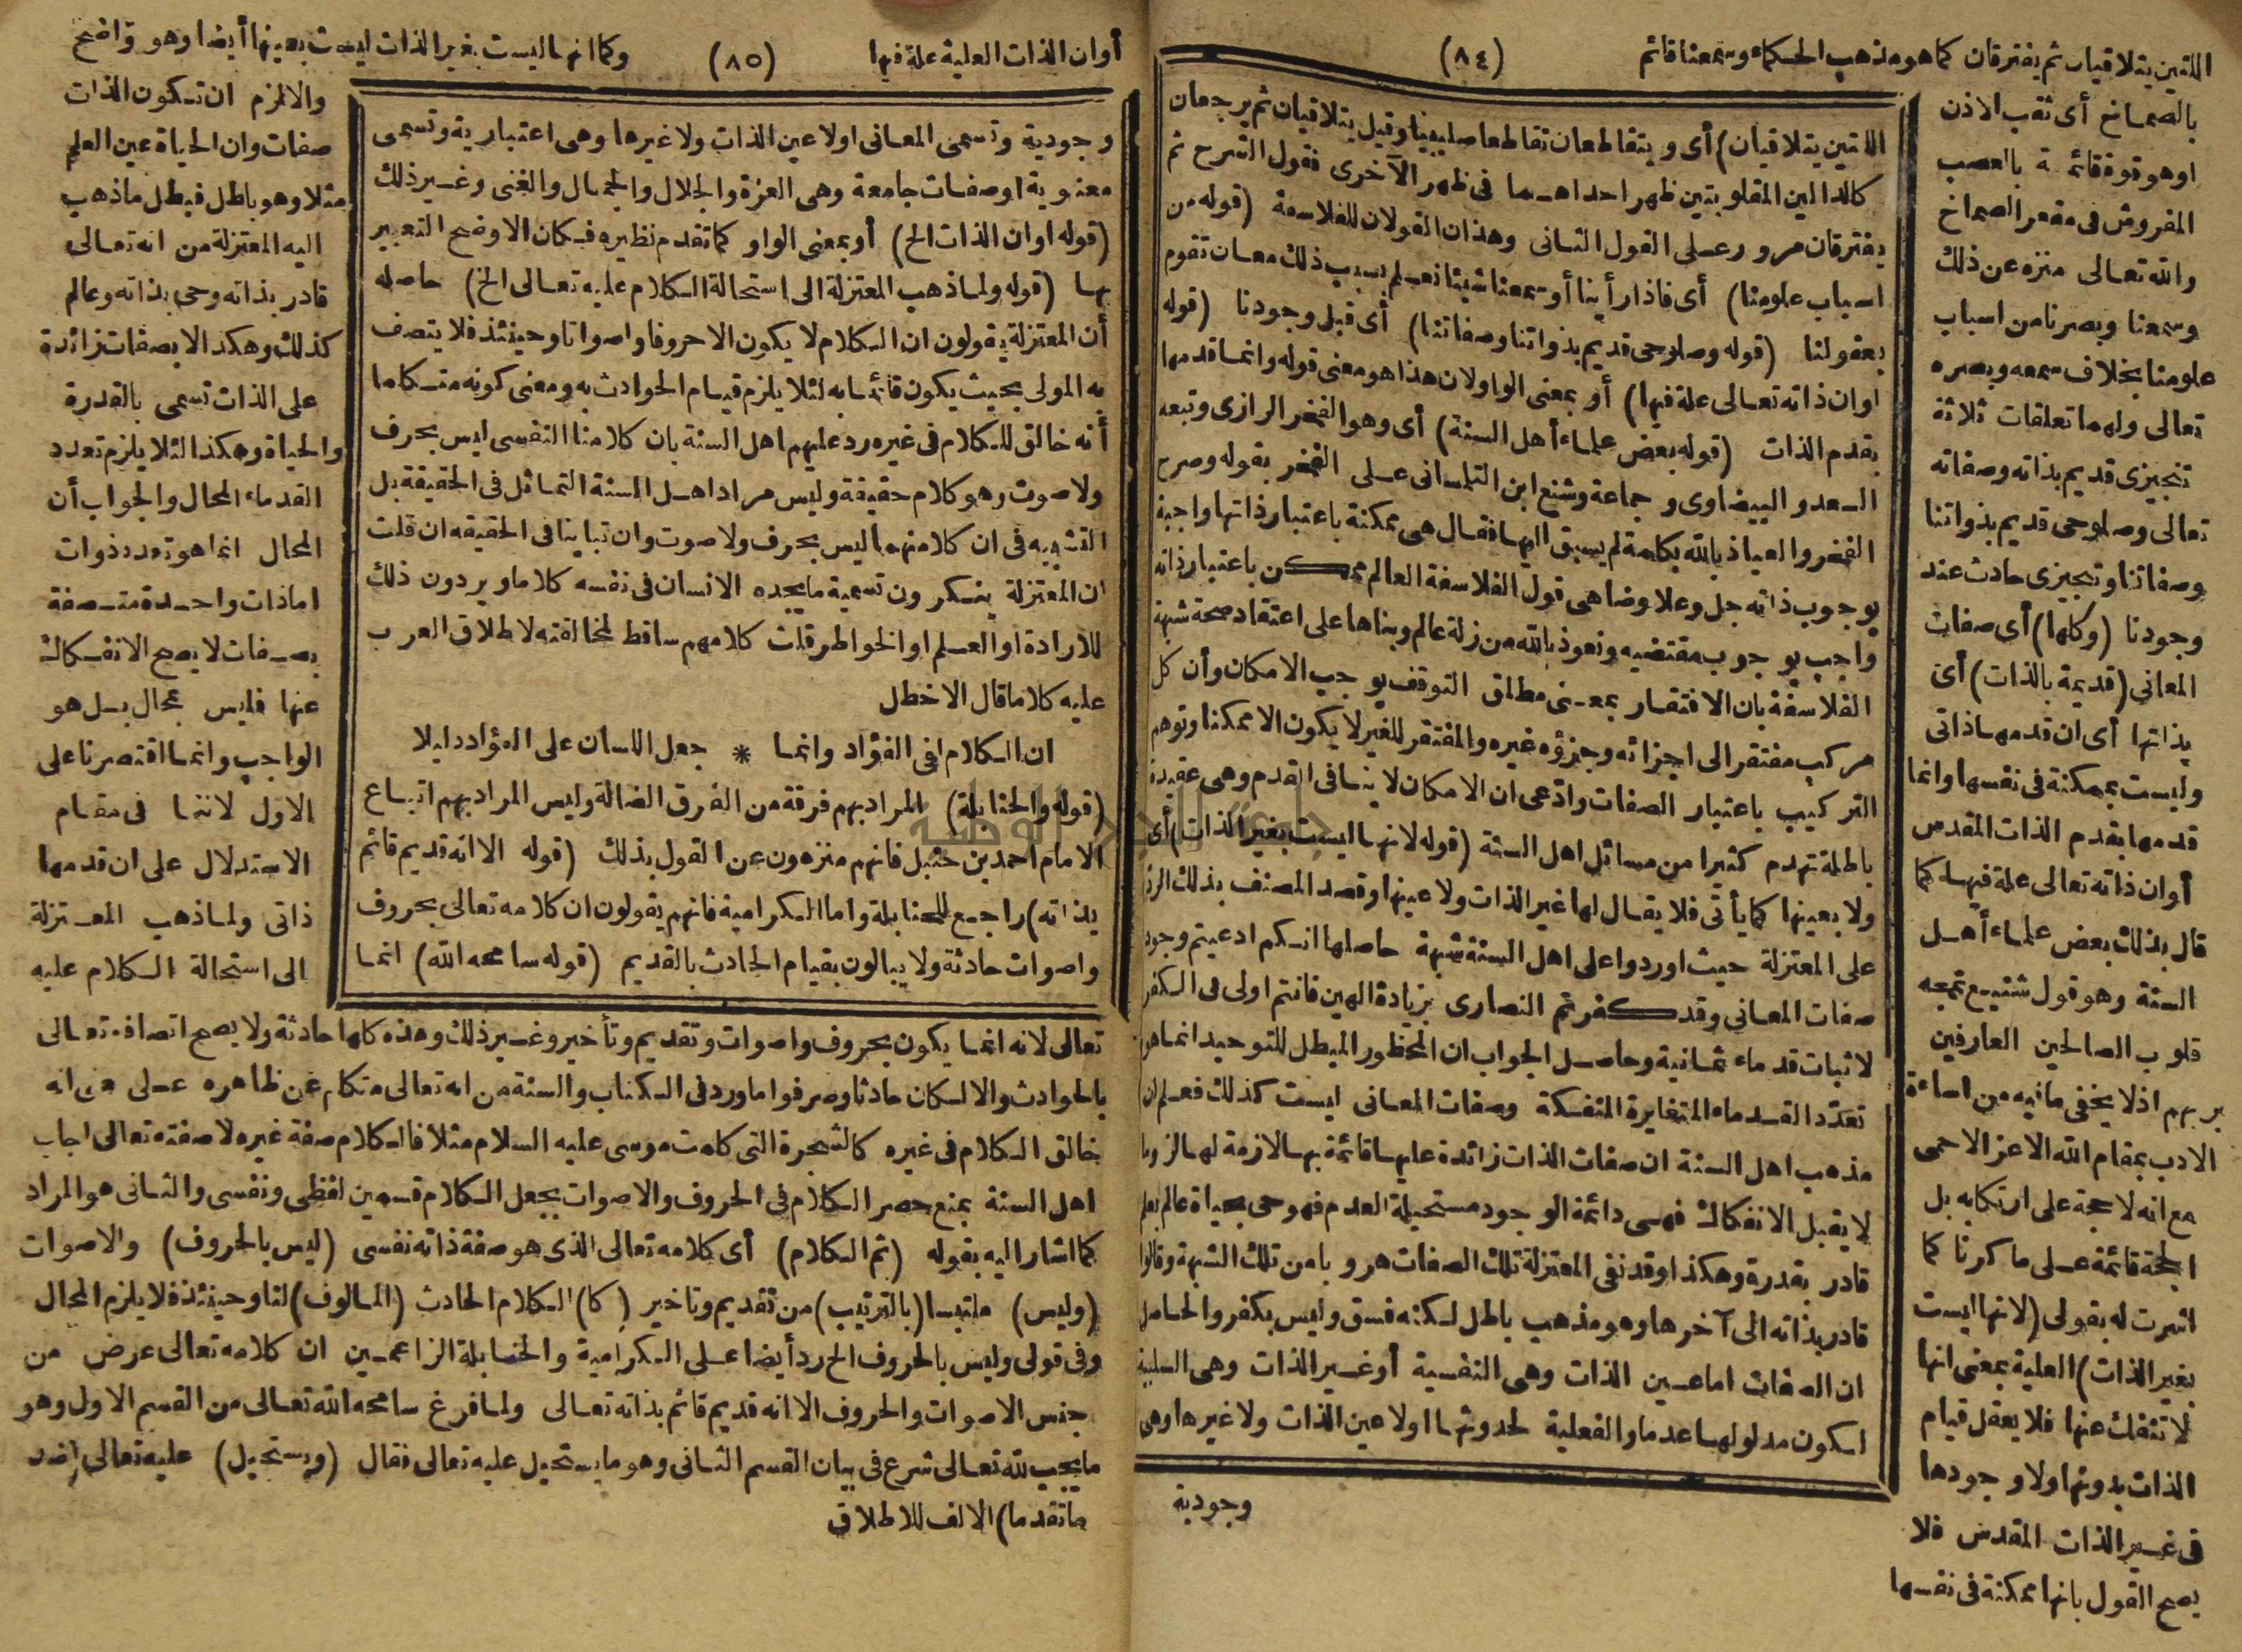 اللتين يتلاقيان ثم يفترقان كما هو مذهب الحكماء وسمعنا قائم
(٨٤)
بالصماخ أى ثقب الاذن
او هو قوة قائمة بالعصب
المفروش فى مقعر الصماخ
والله تعالى منزه عن ذلك
وسمعنا وبصرنا من اسباب
علومنا بخلاف سمعه وبصره
تعالى ولهما تعلقات ثلاثة
تنجيزى قديم بذاته وصفاته
تعالى وصلوحى قديم بذواتنا
وصفاتنا وتنجيزى حادث عند
وجودنا (وكلها) أى صفات
المعانى (قديمة بالذات) أى
بذاتها أى ان قدمها ذاتى
وليست بممكنة فى نفسها وانما
قدمها بقدم الذات المقدس
أو ان ذاته تعالى علة فيها كما
قال بذلك بعض علماء أهل
السنة وهو قول شنيع تمجه
قلوب الصالحين العارفين
بربهم اذ لا يخفى ما فيه من اساءة
الادب بمقام الله الاعز الاحمى
مع انه لا حجة على ارتكابه بل
الحجة قائمة على ما ذكرنا كما
اشرت له بقولى (لانها ليست
بغير الذات) العلية بمعنى انها
لا تنفك عنها فلا يعقل قيام
الذات بدونها ولا وجودها
فى غير الذات المقدس فلا
يصح القول بانها ممكنة فى نفسها
اللتين يتلاقيان) أى ويتقاطعان تقاطعا صليبيا وقيل يتلاقيان ثم يرجعان
كالدالين المقلوبتين ظهر احداهما فى ظهر الآخرى فقول الشرح ثم
يفترقان مرور على القول الثانى وهذان القولان للفلاسفة (قوله من
اسباب علومنا) أى فاذا رأينا أو سمعنا شيئا نعلم بسبب ذلك معان تقوم
بعقولنا (قوله وصلوحى قديم بذواتنا وصفاتنا) أى قبل وجودنا (قوله
او ان ذاته تعالى علة فيها) أو بمعنى الواو لان هذا هو معنى قوله وانما قدمها
بقدم الذات (قوله بعض علماء أهل السنة) أى وهو الفخر الرازى وتبعه
السعد والبيضاوى وجماعة وشنع ابن التلمسانى على الفخر بقوله وصرح
الفخر والعياذ بالله بكلمة لم يسبق اليها فقال هى ممكنة باعتبار ذاتها واجبة
بوجوب ذاته جل وعلا وضاهى قول الفلاسفة العالم ممكن باعتبار ذاته
واجب بوجوب مقتضيه ونعوذ بالله من زلة عالم وبناها على اعتقاد صحة شبهة
الفلاسفة بان الافتقار بمعنى مطلق التوقف يوجب الامكان وأن كل
مركب مفتقر الى اجزائه وجزؤه غيره والمفتقر للغير لا يكون الا ممكنا وتوهم
التركيب باعتبار الصفات وادعى ان الامكان لا ينافى القدم وهى عقيدة
باطلة تهدم كثيرا من مسائل اهل السنة (قوله لانها ليست بغير الذات) أى
ولا بعينها كما يأتى فلا يقال لها غير الذات ولا عينها وقصد المصنف بذلك الرد
على المعتزلة حيث اوردوا على اهل السنة شبهة حاصلها انكم ادعيتم وجود
صفات المعانى وقد كفرتم النصارى بزيادة الهين فانتم اولى فى الكفر
لاثبات قدماء ثمانية وحاصل الجواب ان المحظور المبطل للتوحيد انما هو
تعدد القدماء المتغايرة المنفكة وصفات المعانى ليست كذلك فعلم ان
مذهب اهل السنة ان صفات الذات زائدة عليها قائمة بها لازمة لها لزوما
لا يقبل الانفكاك فهى دائمة الوجود مستحيلة العدم فهو حى بحياة عالم بعلم
قادر بقدرة وهكذا وقد نفى المعتزلة تلك الصفات هروبا من تلك الشبهة وقالوا
قادر بذاته الى آخرها وهو مذهب باطل لكنه فسق وليس بكفر والحاصل
ان الصفات اما عين الذات وهى النفسية أو غير الذات وهى السلبية
لكون مدلولها عدما والفعلية لحدوثها او لا عين الذات ولا غيرها وهى
وجودية
أو ان الذات العلية علة فيها
(٨٥)
وكما انها ليست بغير الذات ليست بعينها أيضا وهو واضح
والا لزم ان تكون الذات
صفات وان الحياة عين العلم
مثلا وهو باطل فبطل ما ذهب
اليه المعتزلة من انه تعالى
قادر بذاته وحى بذاته وعالم
كذلك وهكذا لا بصفات زائدة
على الذات تسمى بالقدرة
والحياة وهكذا لئلا يلزم تعدد
القدماء المحال والجواب أن
المحال انما هو تعدد ذوات
اما ذات واحدة متصفة
بصفات لا يصح الانفكاك
عنها فليس بمحال بل هو
الواجب وانما اقتصرنا على
الاول لاننا فى مقام
الاستدلال على ان قدمها
ذاتى ولما ذهب المعتزلة
الى استحالة الكلام عليه
وجودية وتسمى المعانى اولا عين الذات ولا غيرها وهى اعتبارية وتسمى
معنوية او صفات جامعة وهى العزة والجلال والجمال والغنى وغير ذلك
(قوله او ان الذات الخ) أو بمعنى الواو كما تقدم نظيره فكان الاوضح التعبير
بها (قوله ولما ذهب المعتزلة الى استحالة الكلام عليه تعالى الخ) حاصله
أن المعتزلة يقولون ان الكلام لا يكون الا حروفا واصواتا وحينئذ فلا يتصف
به المولى بحيث يكون قائما به لئلا يلزم قيام الحوادث به ومعنى كونه متكلما
أنه خالق للكلام فى غيره رد عليهم اهل السنة بان كلامنا النفسى ليس بحرف
ولا صوت وهو كلام حقيقة وليس مراد اهل السنة التماثل فى الحقيقة بل
التشبيه فى ان كلا منهما ليس بحرف ولا صوت وان تباينا فى الحقيقه ان قلت
ان المعتزلة ينكرون تسمية ما يجده الانسان فى نفسه كلاما ويردون ذلك
للارادة او العلم او الخواطر قلت كلامهم ساقط لمخالفته لاطلاق العرب
عليه كلاما قال الاخطل
ان الكلام لفى الفؤاد وانما * جعل اللسان على الفؤاد دليلا
(قوله والحنابلة) المراد بهم فرقة من الفرق الضالة وليس المراد بهم اتباع
الامام احمد بن حنبل فانهم منزهون عن القول بذلك (قوله الا انه قديم قائم
بذاته) راجع للحنابلة واما الكرامية فانهم يقولون ان كلامه تعالى بحروف
واصوات حادثة ولا يبالون بقيام الحادث بالقديم (قوله سامحه الله) انما
تعالى لانه انما يكون بحروف واصوات وتقديم وتأخير وغير ذلك وهذه كلها حادثة ولا يصح اتصافه تعالى
بالحوادث والا لكان حادثا وصرفوا ما ورد فى الكتاب والسنة من انه تعالى متكلم عن ظاهره على معنى انه
خالق الكلام فى غيره كالشجرة التى كلمت موسى عليه السلام مثلا فالكلام صفة غيره لا صفته تعالى اجاب
اهل السنة بمنع حصر الكلام فى الحروف والاصوات بجعل الكلام قسمين لفظى ونفسى والثانى هو المراد
كما اشار اليه بقوله (ثم الكلام) أى كلامه تعالى الذى هو صفة ذاته نفسى (ليس بالحروف) والاصوات
(وليس) ملتبسا (بالترتيب) من تقديم وتاخير (كا) الكلام الحادث (المالوف) لنا وحينئذ فلا يلزم المحال
وفى قولى وليس بالحروف الخ رد أيضا على الكرامية والحنابلة الزاعمين ان كلامه تعالى عرض من
جنس الاصوات والحروف الا انه قديم قائم بذاته تعالى ولما فرغ سامحه الله تعالى من القسم الاول وهو
ما يجب لله تعالى شرع فى بيان القسم الثانى وهو ما يستحيل عليه تعالى فقال (ويستحيل) عليه تعالى (ضد
ما تقدما) الالف للاطلاق